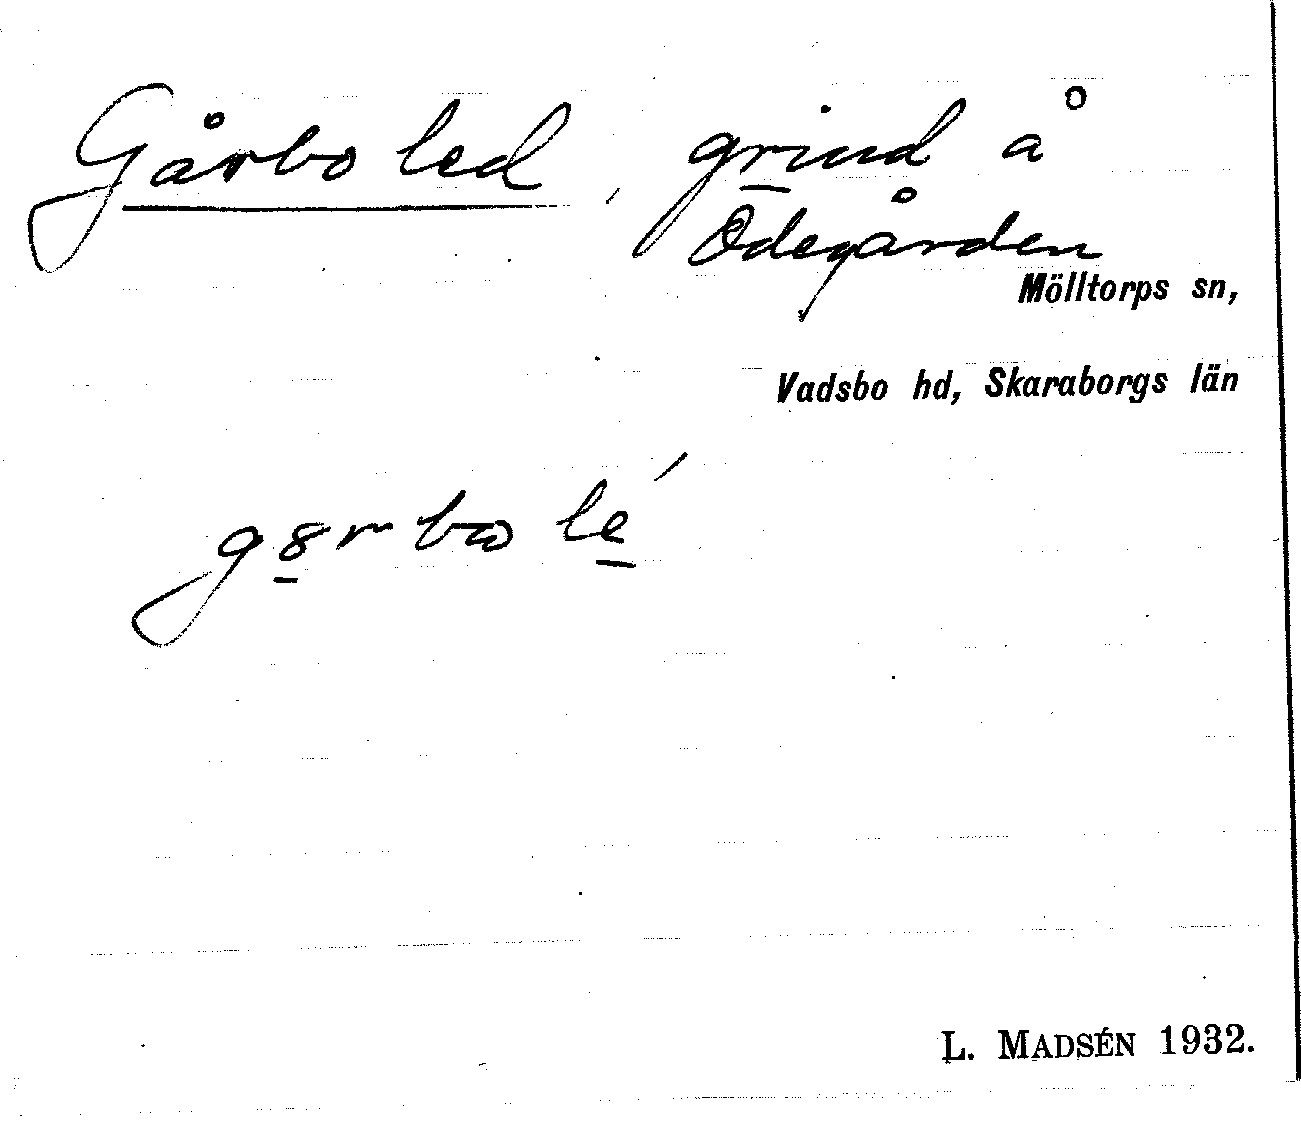 Gårbo led, grind å
Ödegården
Mölltorps sn,
Vadsbo hd, Skaraborgs län
L. MADSÉN 1932.